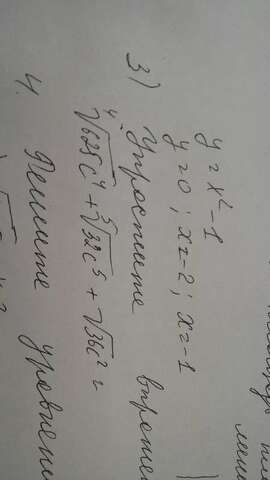 y = x² - 1
y = 0 ; x = -2 ; x = -1
3) Упростите выражен
⁴√625c⁴ + ⁵√32c⁵ + √36c² =
4. Решите уравнени